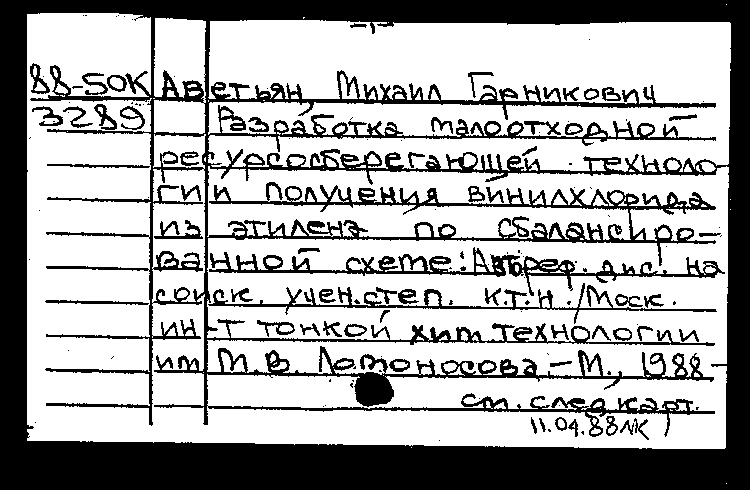 -1-
88-50К Аветьян, Михаил Гарникович
3289 Разработка малоотходной
ресурсосберегающей техноло-
гии получения винилхлорида
из этилена по сбалансиро-
ванной схеме: Автореф. дис. на
соиск. учен. степ. к.т.н. / Моск.
ин-т тонкой хим. технологии
им М. В. Ломоносова. - М., 1988 -
см. след карт.
11.04.88 НК